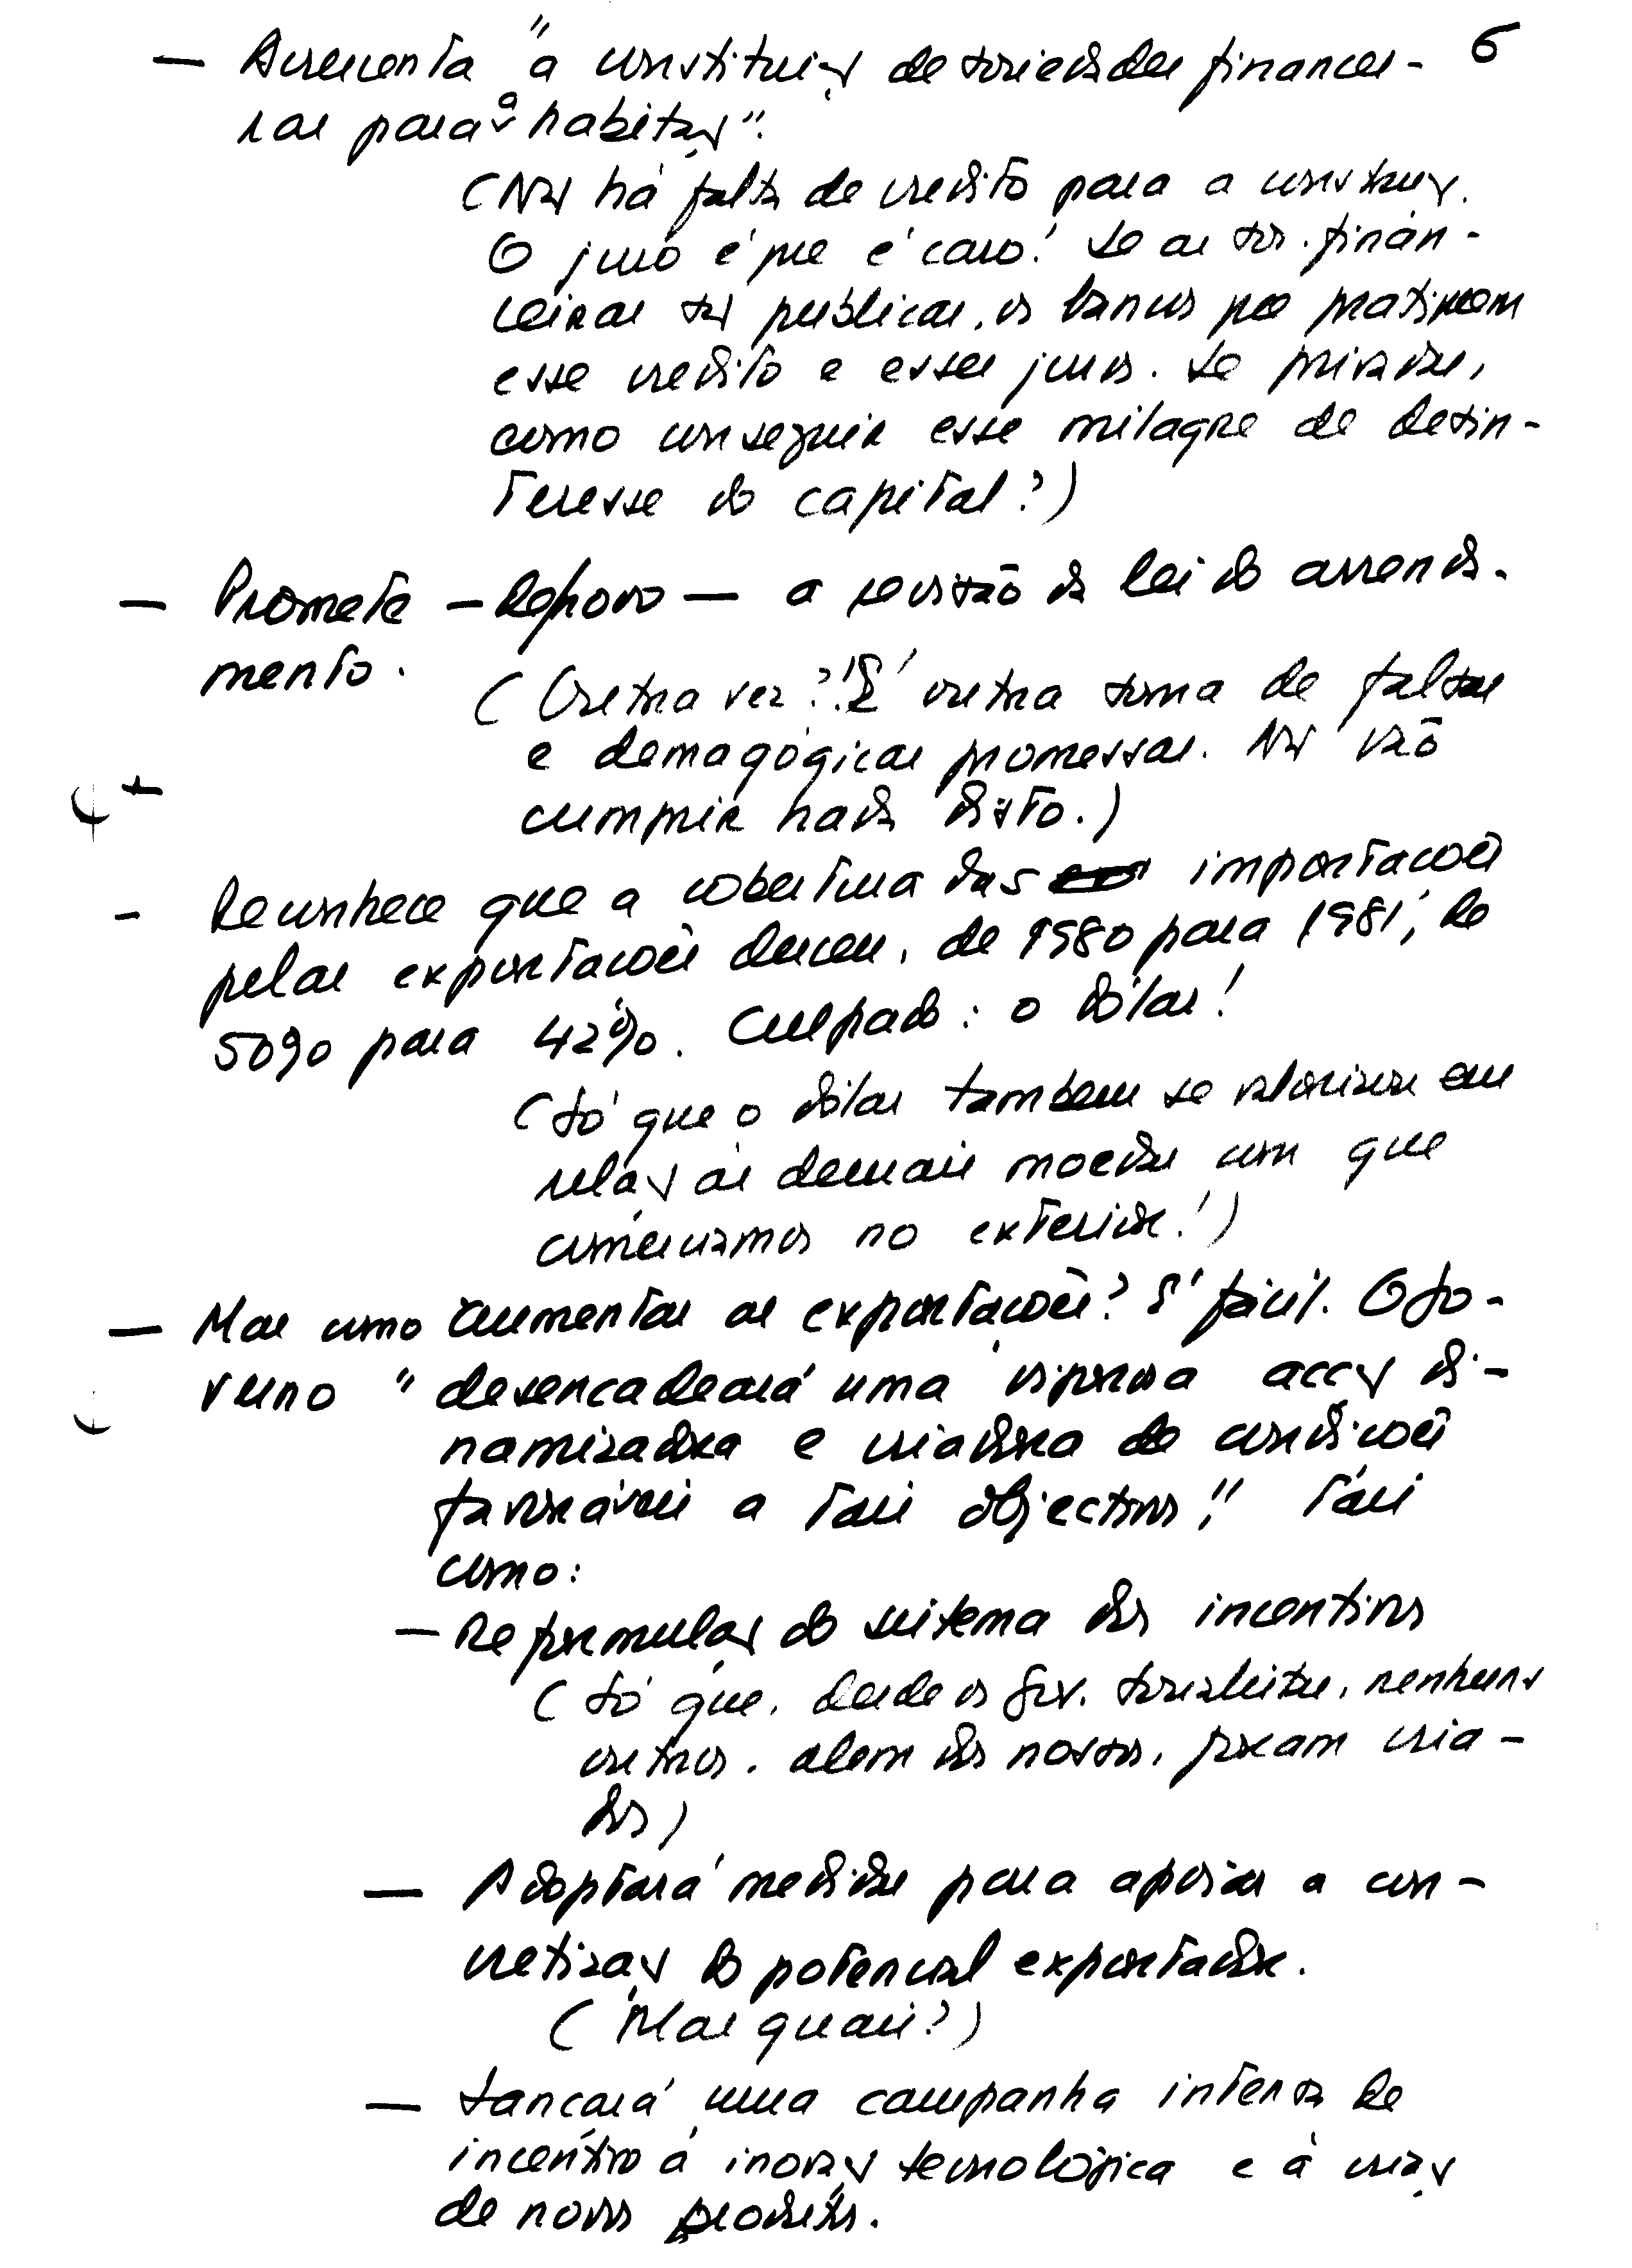 6
— Acrescenta "a constituição de sociedades financei-
ras para a habitação".
(Não há falta de crédito para a construção.
O juro é que é caro! Se as soc. finan-
ceiras são públicas, os bancos que pratiquem
esse crédito e esses juros. Se privadas,
como conseguir esse milagre de desin-
teresse do capital?)
— Promete — de novo — a revisão da lei do arrenda-
mento.
(Outra vez?! É outra soma de falsas
e demagógicas promessas. Não vão
cumprir nada disto.)
- Reconhece que a cobertura das importações
pelas exportações desceu, de 1980 para 1981, de
50% para 42%. Culpado: o dólar!
(Só que o dólar também se valorizou em
relação às demais moedas com que
comerciamos no exterior!)
— Mas como aumentar as exportações? É fácil. O Go-
verno "desencadeará uma vigorosa acção di-
namizadora e criadora de condições
favoráveis a tais objectivos". Tais
como:
— Reformulação do sistema dos incentivos
(Só que, desde os Gov. socialistas, nenhuns
outros, além dos nossos, foram cria-
dos)
— Adoptará medidas para apoiar a con-
cretização do potencial exportador.
(Mas quais?)
— Lançará uma campanha intensa de
incentivo à inovação tecnológica e à criação
de novos produtos.